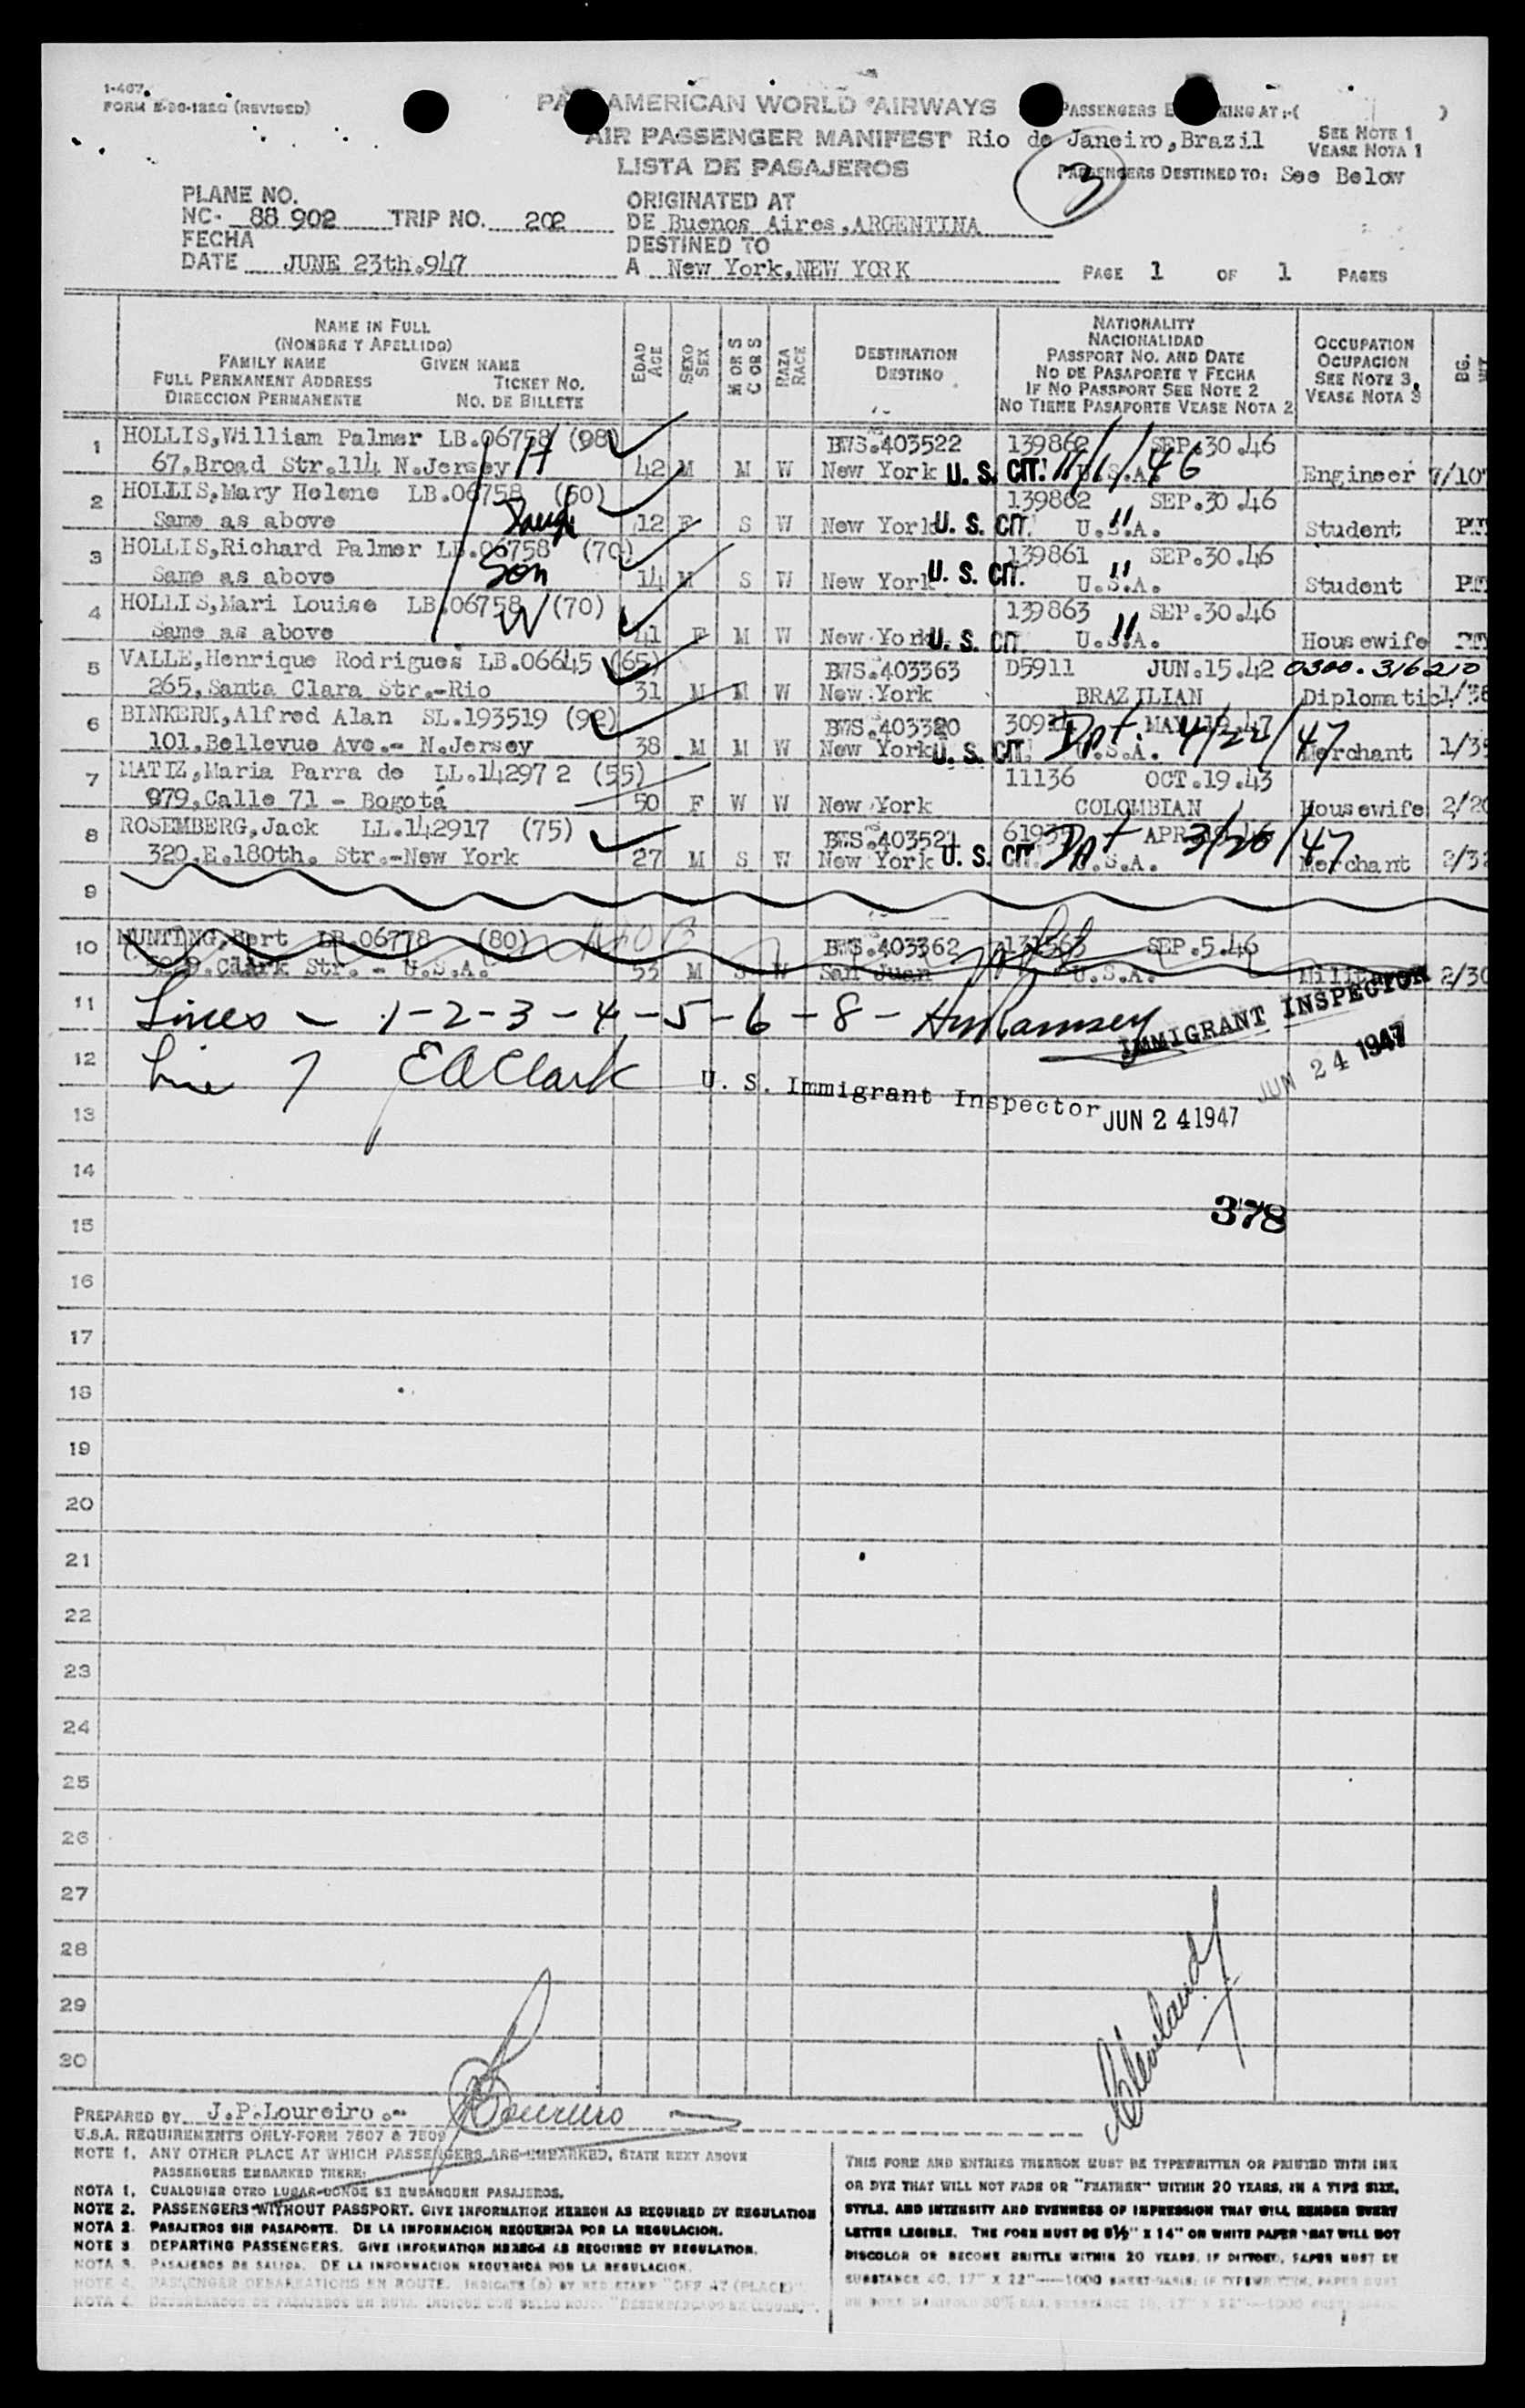 1-467.
FORM E-96-122C (REVISED)
PAN AMERICAN WORLD AIRWAYS
AIR PASSENGER MANIFEST
LISTA DE PASAJEROS
PASSENGERS EMBARKING AT:-( )
Rio de Janeiro,Brazil
SEE NOTE 1
VEASE NOTA 1
PASSENGERS DESTINED TO: See Below
3
PLANE NO.
NC- 88 902 TRIP NO. 202
FECHA
DATE JUNE 23th.947
ORIGINATED AT
DE Buenos Aires,ARGENTINA
DESTINED TO
A New York,NEW YORK
PAGE 1 OF 1 PAGES
NAME IN FULL
(NOMBRE Y APELLIDO)
FAMILY NAME GIVEN NAME
FULL PERMANENT ADDRESS TICKET NO.
DIRECCION PERMANENTE NO. DE BILLETE
EDAD AGE
SEXO SEX
M OR S C OR S
RAZA RACE
DESTINATION
DESTINO
NATIONALITY
NACIONALIDAD
PASSPORT NO. AND DATE
NO DE PASAPORTE Y FECHA
IF NO PASSPORT SEE NOTE 2
NO TIENE PASAPORTE VEASE NOTA 2
OCCUPATION
OCUPACION
SEE NOTE 3
VEASE NOTA 3
BG.
WT
1 HOLLIS,William Palmer LB.06758 (98) BWS.403522 139862 SEP.30.46
67.Broad Str.114 N.Jersey H 42 M M W New York U. S. CIT. 11/1/46 U.S.A. Engineer 7/107
2 HOLLIS,Mary Helene LB.06758 (60) 139862 SEP.30.46
Same as above Daugh 12 F S W New York U. S. CIT. " U.S.A. Student
3 HOLLIS,Richard Palmer LB.06758 (70) 139861 SEP.30.46
Same as above Son 14 M S W New York U. S. CIT. " U.S.A. Student
4 HOLLIS,Mari Louise LB.06758 (70) 139863 SEP.30.46
Same as above W 41 F M W New York U. S. CIT " U.S.A. Housewife
5 VALLE,Henrique Rodrigues LB.06645 (65) BWS.403363 D5911 JUN.15.42 0300.316210
265.Santa Clara Str.-Rio 31 M M W New York BRAZILIAN Diplomatic 1/38
6 BINKERK,Alfred Alan SL.193519 (92) BWS.403320 MAY.19.47
101.Bellevue Ave.- N.Jersey 38 M M W New York U. S. CIT. Dpt. 4/22/47 U.S.A. Merchant 1/35
7 MATIZ,Maria Parra de LL.142972 (55) 11136 OCT.19.43
979.Calle 71 - Bogotá 50 F W W New York COLOMBIAN Housewife 2/20
8 ROSEMBERG,Jack LL.142917 (75) BWS.403521 APR.
320.E.180th. Str.-New York 27 M S W New York U. S. CIT. Dpt 3/20/47 U.S.A. Merchant 2/32
9
10 MUNTING,Bert LB.06778 (80) BWS.403362 SEP.5.46
Clark Str. - U.S.A. 53 M S W San Juan U.S.A. 2/30
11 Lines - 1-2-3-4-5-6-8- HmRamsey
IMMIGRANT INSPECTOR
JUN 24 1947
12 Line 7 E A Clark U. S. Immigrant Inspector JUN 2 4 1947
13
14
378
15
16
17
18
19
20
21
22
23
24
25
26
27
28
29
30
PREPARED BY J.P.Loureiro.-
U.S.A. REQUIREMENTS ONLY-FORM 7507 & 7509
NOTE 1. ANY OTHER PLACE AT WHICH PASSENGERS ARE EMBARKED, STATE NEXT ABOVE
PASSENGERS EMBARKED THERE:
NOTA 1. CUALQUIER OTRO LUGAR DONDE SE EMBARQUEN PASAJEROS.
NOTE 2. PASSENGERS WITHOUT PASSPORT. GIVE INFORMATION HEREON AS REQUIRED BY REGULATION
NOTA 2. PASAJEROS SIN PASAPORTE. DE LA INFORMACION REQUERIDA POR LA REGULACION.
NOTE 3 DEPARTING PASSENGERS. GIVE INFORMATION HEREON AS REQUIRED BY REGULATION.
NOTA 3. PASAJEROS DE SALIDA. DE LA INFORMACION REQUERIDA POR LA REGULACION.
NOTE 4. PASSENGER DEBARKATIONS EN ROUTE. INDICATE (D) BY RED STAMP "OFF AT (PLACE)"
NOTA 4. DESEMBARCOS DE PASAJEROS EN RUTA. INDIQUE CON SELLO ROJO. "DESEMBARCADO EN (LUGAR)".
THIS FORM AND ENTRIES THEREON MUST BE TYPEWRITTEN OR PRINTED WITH INK
OR DYE THAT WILL NOT FADE OR "FEATHER" WITHIN 20 YEARS, IN A TYPE SIZE,
STYLE, AND INTENSITY AND EVENNESS OF IMPRESSION THAT WILL RENDER EVERY
LETTER LEGIBLE. THE FORM MUST BE 8½" X 14" ON WHITE PAPER THAT WILL NOT
DISCOLOR OR BECOME BRITTLE WITHIN 20 YEARS. IF DITTOED, PAPER MUST BE
SUBSTANCE 40, 17" X 22"----1000 SHEET-BASIS; IF TYPEWRITTEN, PAPER MUST